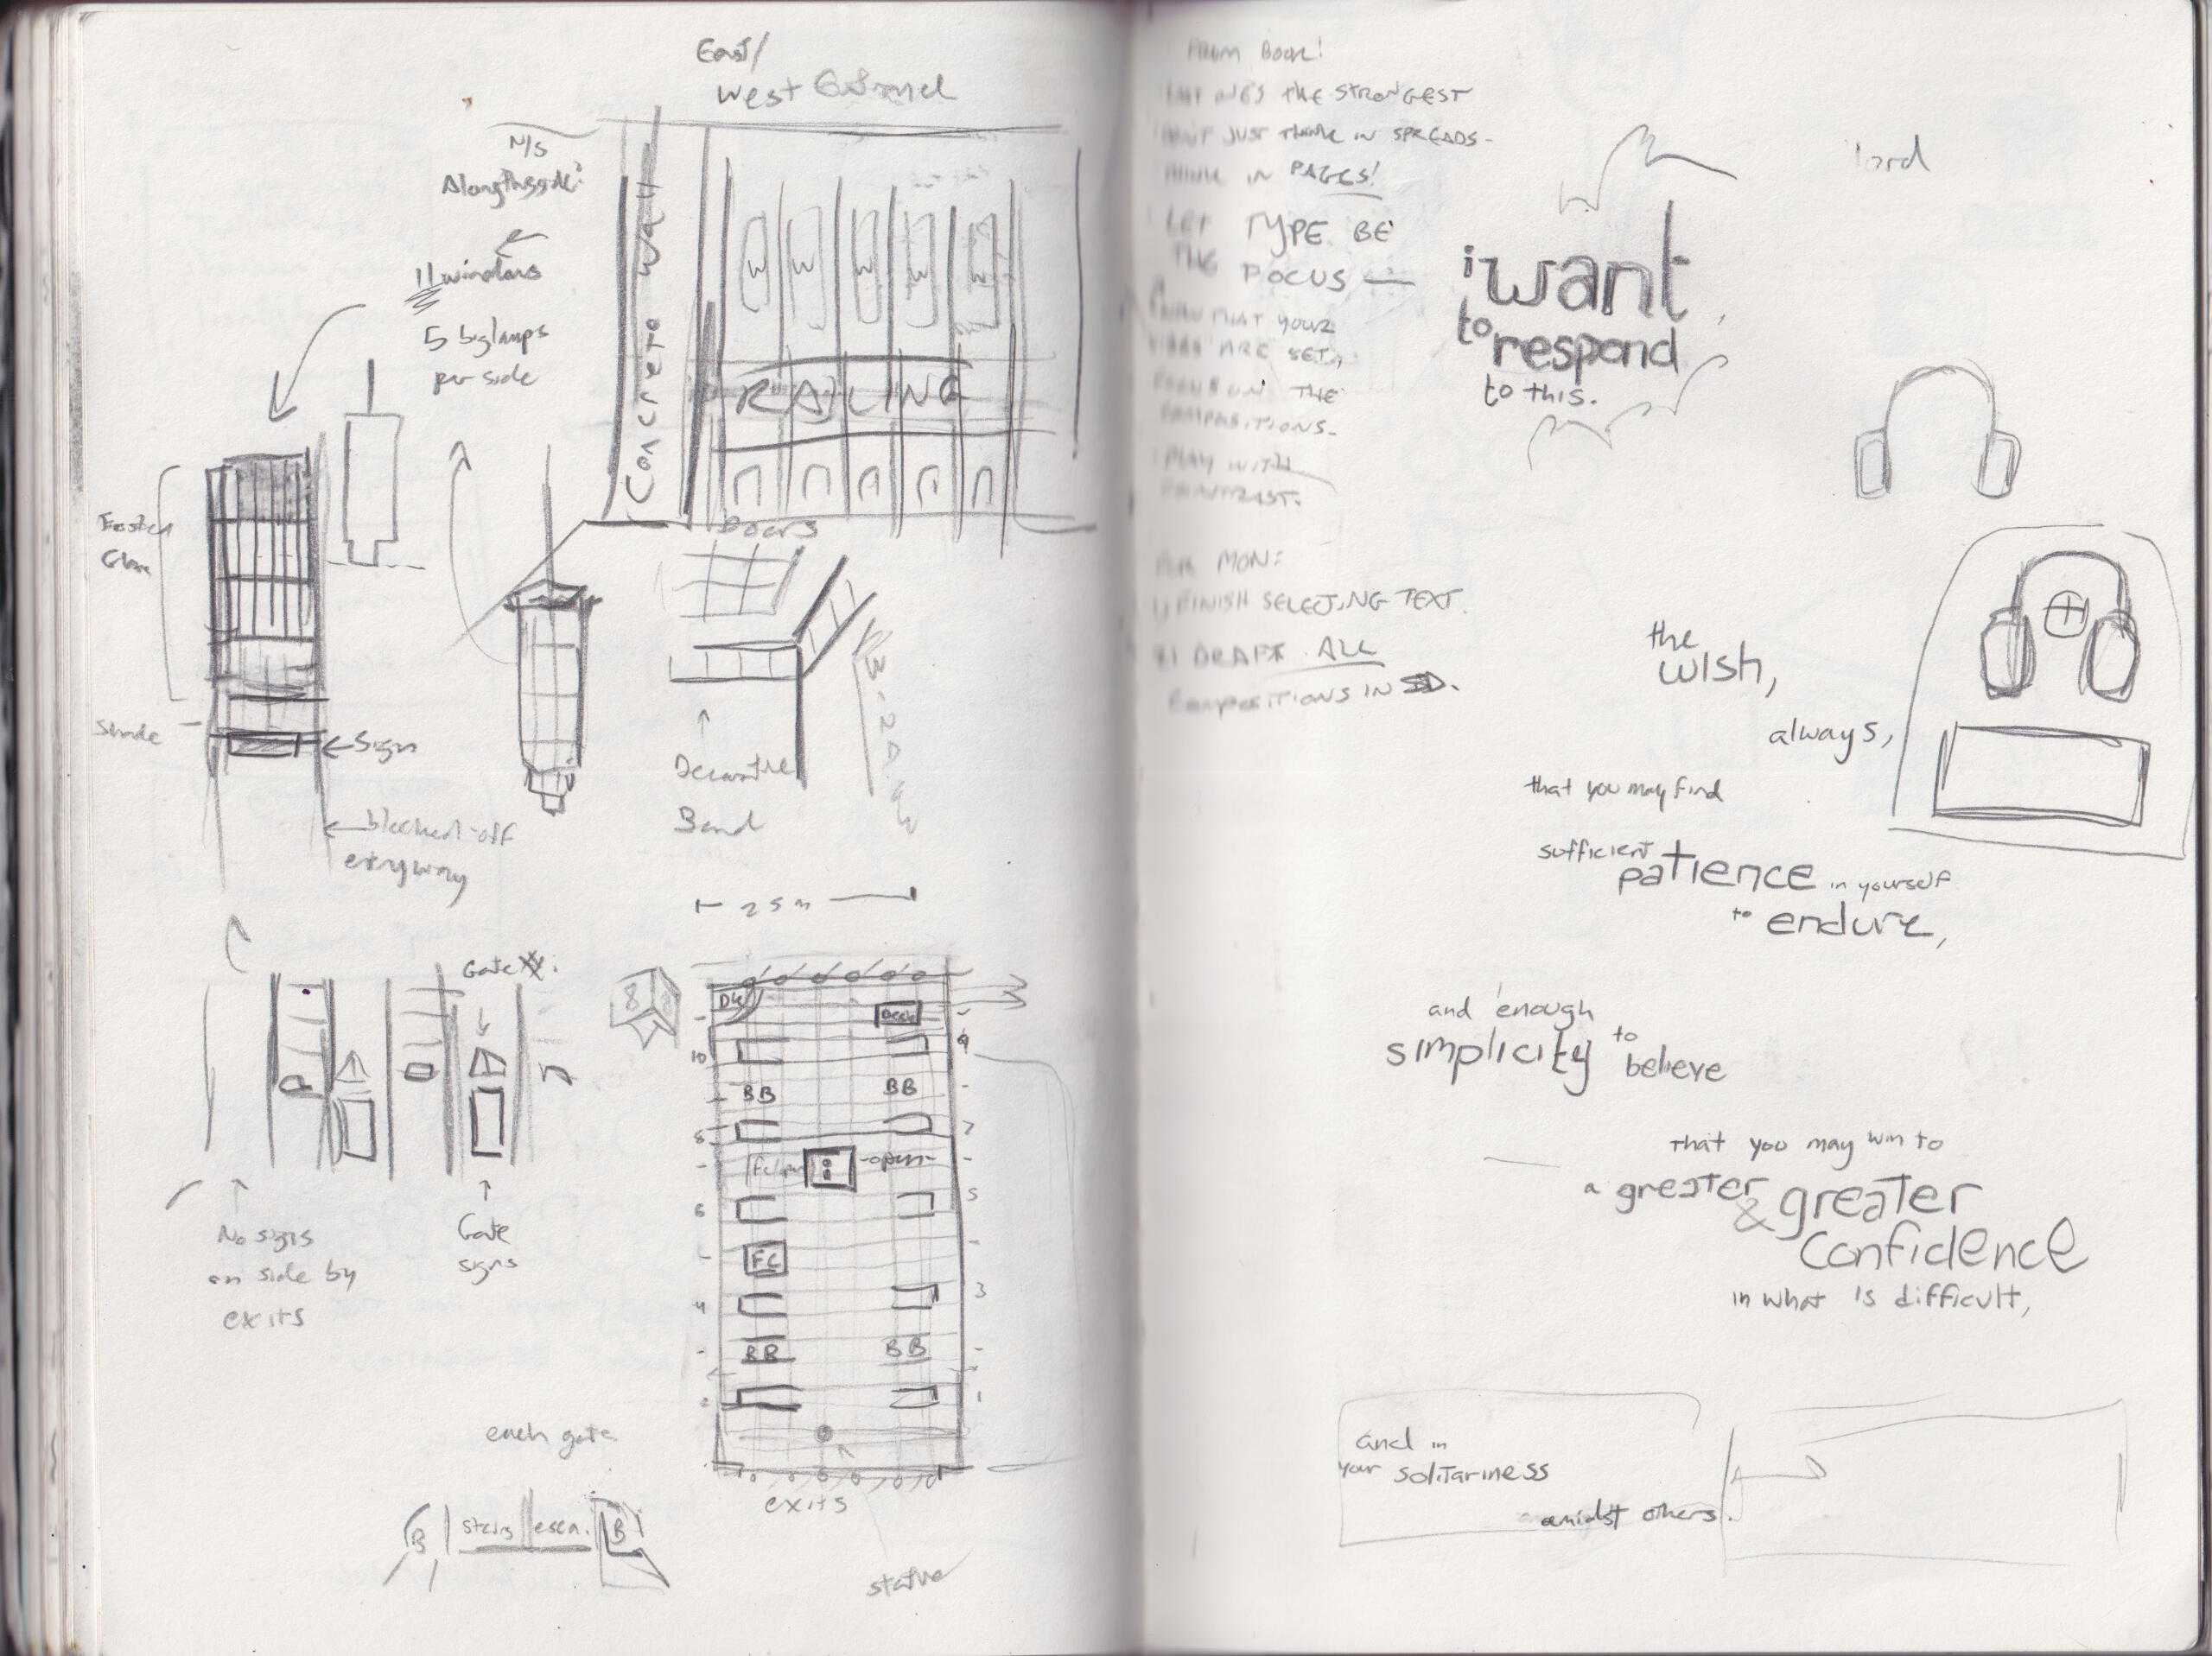 East/
West
N/S
Alongthisside:
11 windows
5 big lamps
per side
Concrete Wall
W W W W W
RAILING
Doors
Sign
blocked-off
entryway
Decorative
Band
25m
Gate
No signs
on side by
exits
Gate
signs
8
Desk
10
9
BB
BB
8
7
open
6
5
FC
4
3
BB
BB
2
1
exits
statue
each gate
B
stairs
esca.
B
FROM BOOK:
THE STRONGEST
JUST THINK IN SPREADS-
THINK IN PAGES!
LET TYPE BE
THE FOCUS —
THAT YOUR
ARE SET,
FOCUS ON THE
COMPOSITIONS.
PLAY WITH
CONTRAST.
FOR MON:
1) FINISH SELECTING TEXT.
2) DRAFT ALL
COMPOSITIONS IN
lord
i want
to respond
to this.
the
wish,
always,
that you may find
sufficient
patience in yourself
to endure,
and enough
simplicity to
believe
that you may win to
a greater
& greater
confidence
in what is difficult,
and in
your solitariness
amidst others.